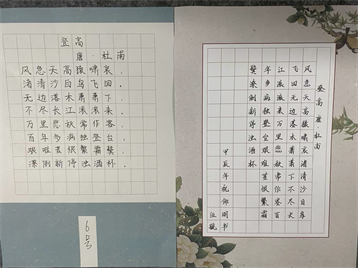 登高
唐·杜甫
风急天高猿啸哀，
渚清沙白鸟飞回。
无边落木萧萧下，
不尽长江滚滚来。
万里悲秋常作客，
百年多病独登台。
艰难苦恨繁霜鬓，
潦倒新停浊酒杯。
6号
登高 唐 杜甫
风急天高猿啸哀渚清沙白鸟
飞回无边落木萧萧下不尽长
江滚滚来万里悲秋常作客百
年多病独登台艰难苦恨繁霜
鬓潦倒新停浊酒杯
甲辰年